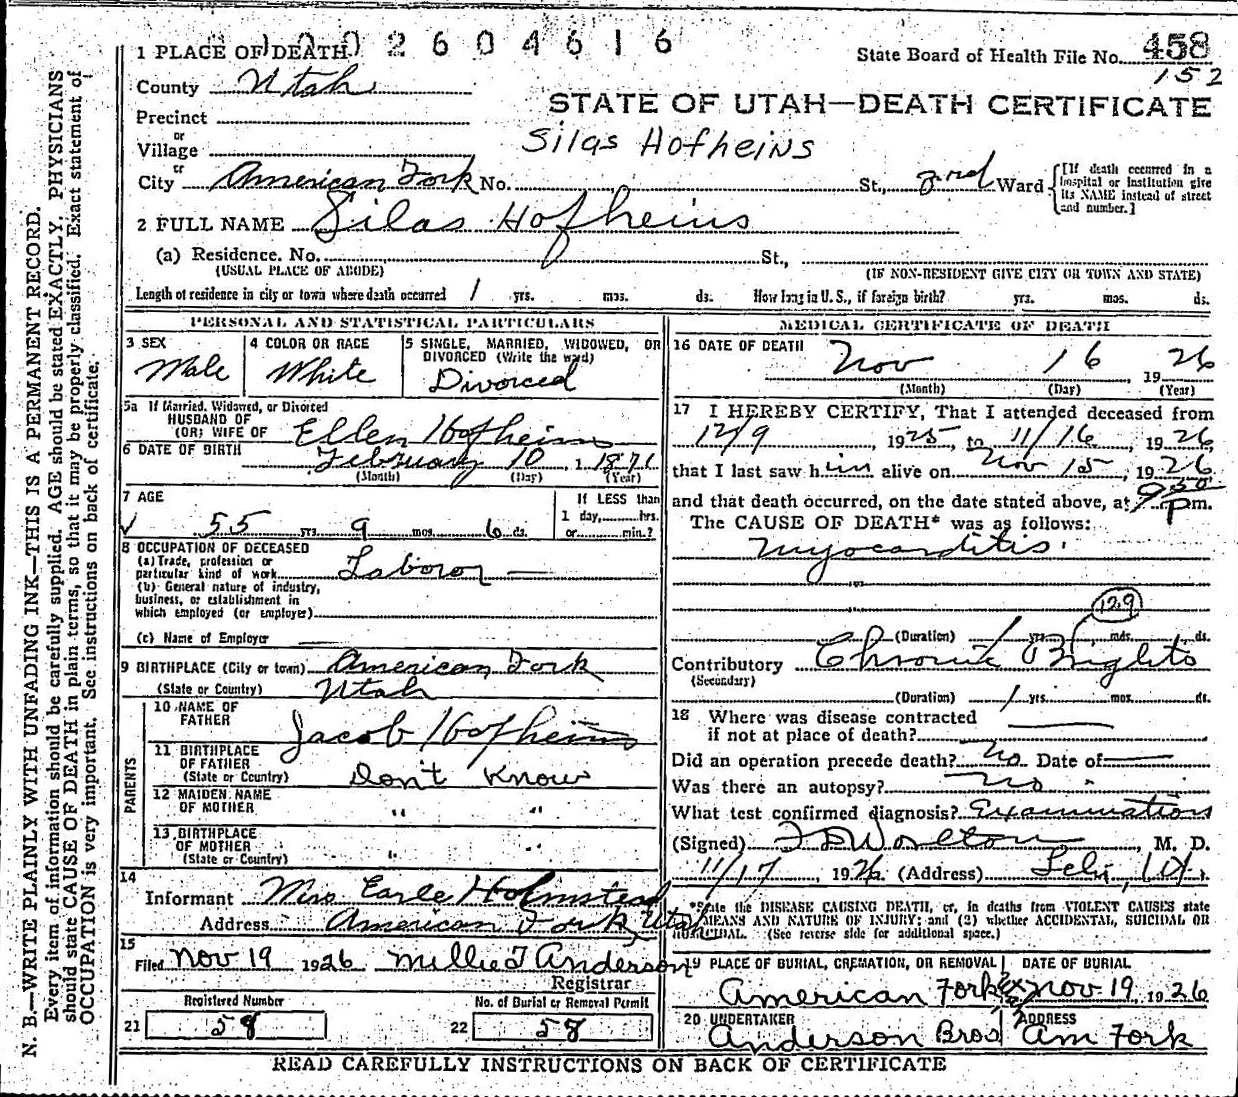 1002604616
1 PLACE OF DEATH
State Board of Health File No. 458
152
County Utah
STATE OF UTAH—DEATH CERTIFICATE
Precinct
or
Silas Hofheins
Village
or
City American Fork No. St., 3rd Ward {[If death occurred in a hospital or institution give its NAME instead of street and number.]
2 FULL NAME Silas Hofheins
(a) Residence. No. St.,
(USUAL PLACE OF ABODE) (IF NON-RESIDENT GIVE CITY OR TOWN AND STATE)
Length of residence in city or town where death occurred 1 yrs. mos. ds. How long in U. S., if foreign birth? yrs. mos. ds.
PERSONAL AND STATISTICAL PARTICULARS
3 SEX
Male
4 COLOR OR RACE
White
5 SINGLE, MARRIED, WIDOWED, OR
DIVORCED (Write the word)
Divorced
5a If Married, Widowed, or Divorced
HUSBAND OF
(OR) WIFE OF Ellen Hofheins
6 DATE OF BIRTH February 10, 1 1871
(Month) (Day) (Year)
7 AGE
55 yrs. 9 mos. 6 ds.
If LESS than
1 day, hrs.
or min.?
8 OCCUPATION OF DECEASED
(a) Trade, profession or
particular kind of work Laboror
(b) General nature of industry,
business, or establishment in
which employed (or employer)
(c) Name of Employer
9 BIRTHPLACE (City or town) American Fork
(State or Country) Utah
PARENTS
10 NAME OF
FATHER Jacob Hofheins
11 BIRTHPLACE
OF FATHER
(State or Country) Don't Know
12 MAIDEN NAME
OF MOTHER " "
13 BIRTHPLACE
OF MOTHER " "
(State or Country)
14
Informant Mrs Earle Holmstead
Address American Fork, Utah
15
Filed Nov 19 1926 Millie T Anderson
Registrar
Registered Number
21 58
No. of Burial or Removal Permit
22 58
MEDICAL CERTIFICATE OF DEATH
16 DATE OF DEATH Nov 16, 1926
(Month) (Day) (Year)
17 I HEREBY CERTIFY, That I attended deceased from
12/9, 1925, to 11/16, 1926,
that I last saw him alive on Nov 15, 1926
and that death occurred, on the date stated above, at 9:50 Pm.
The CAUSE OF DEATH* was as follows:
Myocarditis
129
(Duration) 1 yrs. mds. ds.
Contributory Chronic Brights
(Secondary)
(Duration) 1 yrs. mos. ds.
18 Where was disease contracted
if not at place of death?
Did an operation precede death? No Date of
Was there an autopsy? No
What test confirmed diagnosis? Examination
(Signed) Worlton, M. D.
11/17, 1926 (Address) Lehi, Ut.
*State the DISEASE CAUSING DEATH, or, in deaths from VIOLENT CAUSES state
MEANS AND NATURE OF INJURY; and (2) whether ACCIDENTAL, SUICIDAL OR
HOMICIDAL. (See reverse side for additional space.)
19 PLACE OF BURIAL, CREMATION, OR REMOVAL
American Fork
DATE OF BURIAL
Nov 19, 1926
20 UNDERTAKER
Anderson Bros
ADDRESS
Am Fork
READ CAREFULLY INSTRUCTIONS ON BACK OF CERTIFICATE
N. B.—WRITE PLAINLY WITH UNFADING INK—THIS IS A PERMANENT RECORD.
Every item of information should be carefully supplied. AGE should be stated EXACTLY. PHYSICIANS
should state CAUSE OF DEATH in plain terms, so that it may be properly classified. Exact statement of
OCCUPATION is very important. See instructions on back of certificate.